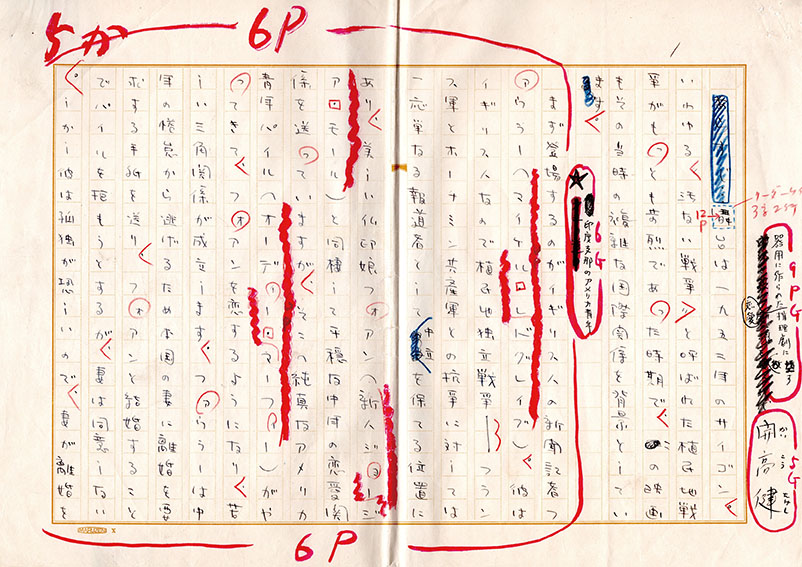 9PG
器用に作られた推理劇に
5G
かいこうたけし
開高健
12P
リーダーケイ
3倍2行
」は一九五二年のサイゴン、
いわゆる〝汚ない戦争〟と呼ばれた植民地戦
争がもっとも苛烈であった時期で、この映画
もその当時の複雑な国際関係を背景としてい
ます。
★
6G
印度支那のアメリカ青年
まず登場するのがイギリス人の新聞記者フ
ァウラー(マイケル・レドグレイブ)、彼は
イギリス人なので植民地独立戦争――フラン
ス軍とホーチミン共産軍との抗争に対しては
一応単なる報道者として中立を保てる位置に
あり、美しい仏印娘フォアン(新人ジョージ
ア・モール)と同棲して平穏な中年の恋愛関
係を送っていますが、そこへ純真なアメリカ
青年パイル(オーディ・マーフィ)がや
ってきて、フォアンを恋するようになり、苦
しい三角関係が成立します。ファウラーは中
年の倦怠から逃げるため本国の妻に離婚を要
求する手紙を送り、フォアンと結婚すること
でパイルを拒もうとするが、妻は同意しない
。しかし彼は孤独が恐しいので、妻が離婚を
6P
5か
6P